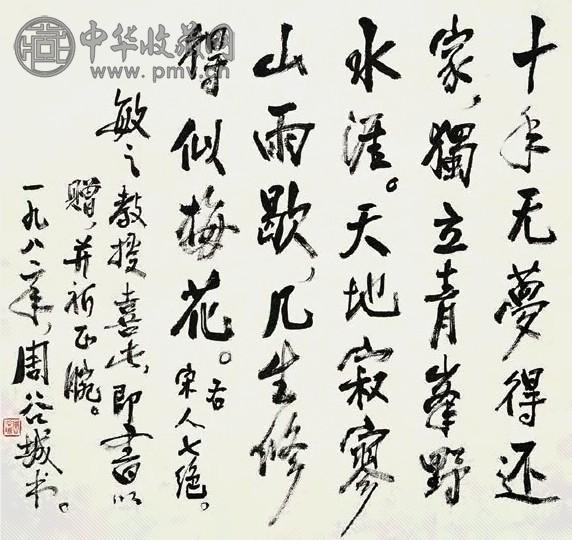 十年无夢得还
家，獨立青峯野
水涯。天地寂寥
山雨歇，几生修
得似梅花。右
宋人七绝。
敏之教授喜此，即書以
贈，并祈正腕。
一九八二年，周谷城书。
中华收藏网
www.pmv.cn